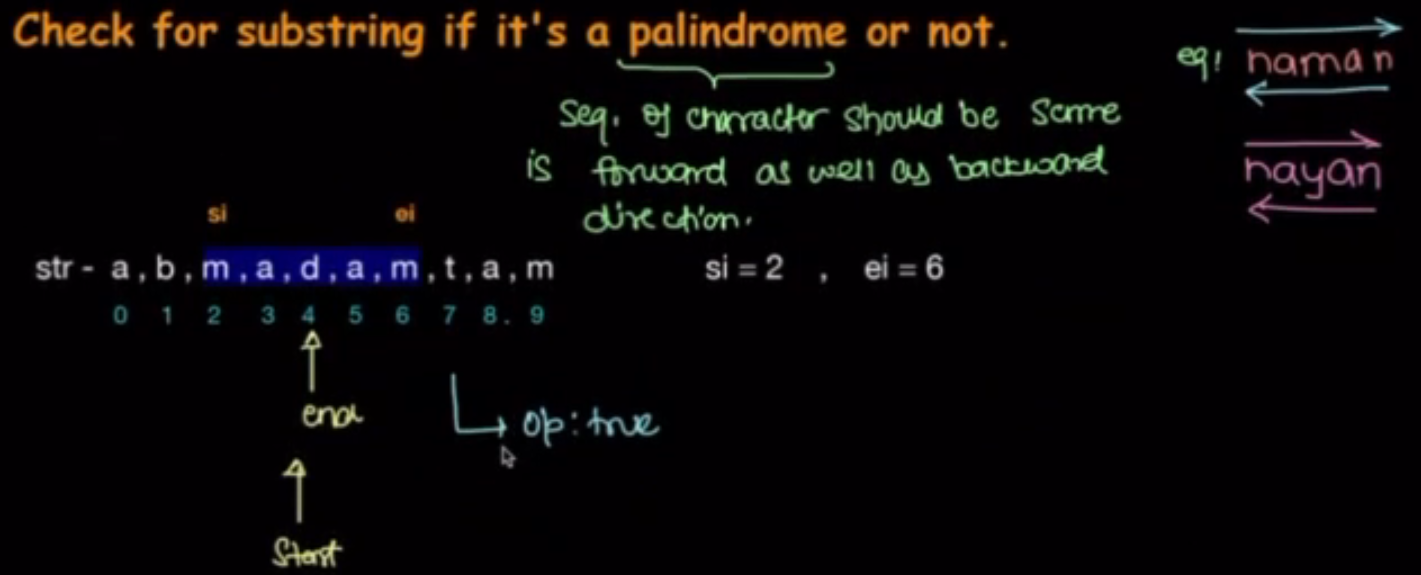 Check for substring if it's a palindrome or not.
eg! naman
seq. of character should be same
is forward as well as backward
direction.
nayan
si ei
str - a , b , m , a , d , a , m , t , a , m si = 2 , ei = 6
0 1 2 3 4 5 6 7 8. 9
end
op: true
start